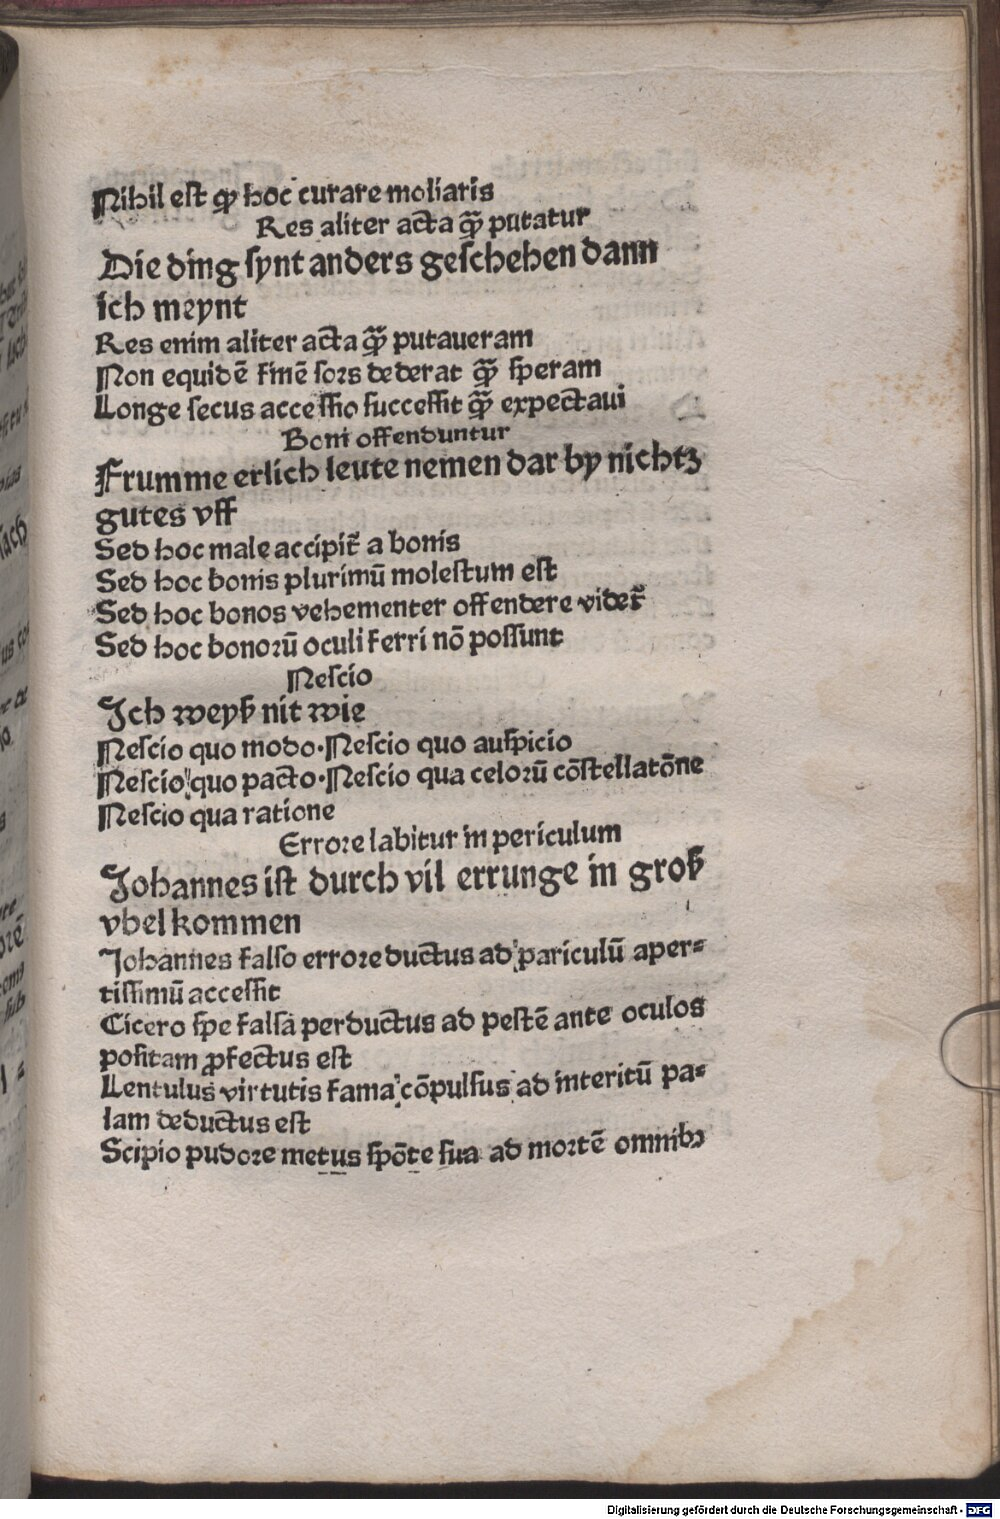 Nihil eſt ꝙ hoc curare moliaris
Res aliter acta ꝙ̄ putatur
Die ding ſynt anders geſchehen dann
ich meynt
Res enim aliter acta ꝙ̄ putaueram
Non equidē finē ſors dederat ꝙ̄ ſperam
Longe ſecus acceſſio ſucceſſit ꝙ̄ expectaui
Boni offenduntur
Frumme erlich leute nemen dar by nichtz
gutes vff
Sed hoc male accipit᷑ a bonis
Sed hoc bonis plurimū moleſtum eſt
Sed hoc bonos vehementer offendere videt᷑
Sed hoc bonorū oculi ferri nō poſſunt
Neſcio
Ich weyß nit wie
Neſcio quo modo·Neſcio quo auſpicio
Neſcio quo pacto·Neſcio qua celorū cōſtellatōne
Neſcio qua ratione
Errore labitur in periculum
Johannes iſt durch vil errunge in groß
vbel kommen
Johannes falſo errore ductus ad pariculū aper⸗
tiſſimū acceſſit
Cicero ſpe falſa perductus ad peſtē ante oculos
poſitam ꝓfectus eſt
Lentulus virtutis fama cōpulſus ad interitū pa⸗
lam deductus eſt
Scipio pudore metus ſpōte ſua ad mortē omnibꝰ
Digitalisierung gefördert durch die Deutsche Forschungsgemeinschaft - DFG